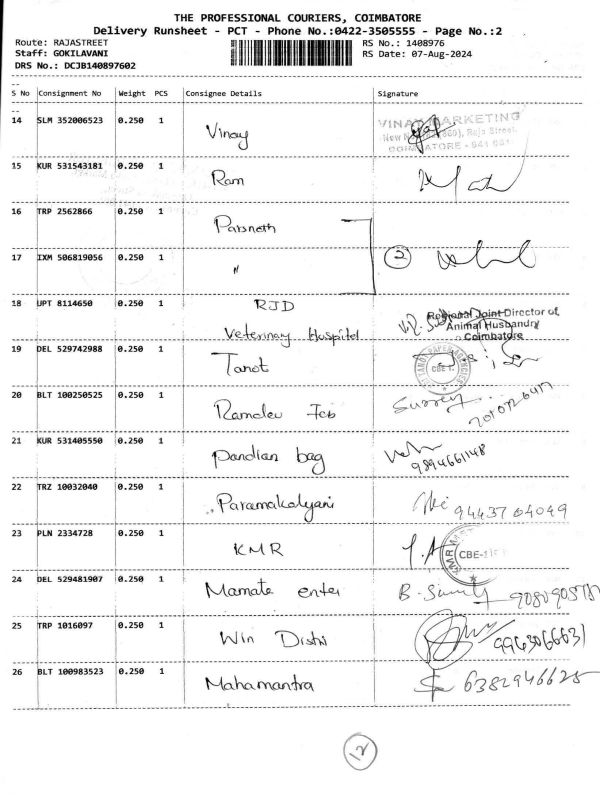 THE PROFESSIONAL COURIERS, COIMBATORE
Delivery Runsheet - PCT - Phone No.:0422-3505555 - Page No.:2
Route: RAJASTREET RS No.: 1408976
Staff: GOKILAVANI RS Date: 07-Aug-2024
DRS No.: DCJB140897602
S No Consignment No Weight PCS Consignee Details Signature
14 SLM 352006523 0.250 1 Vinay VINAY MARKETING
Raja Street
COIMBATORE - 641 001
15 KUR 531543181 0.250 1 Ram
16 TRP 2562866 0.250 1 Parsnath
17 IXM 506819056 0.250 1 " 2
18 UPT 8114650 0.250 1 RJD Regional Joint Director of
Veterinary Hospital Animal Husbandry
Coimbatore
19 DEL 529742988 0.250 1 Tanot CBE 1.
20 BLT 100250525 0.250 1 Ramdev Surrey
21 KUR 531405550 0.250 1 Pandian bag 9894661148
22 TRZ 10032040 0.250 1 Paramakalyani 9443704049
23 PLN 2334728 0.250 1 KMR KMR CBE-1
24 DEL 529481907 0.250 1 Mamate enter B.
25 TRP 1016097 0.250 1 Win Dishi 9963066631
26 BLT 100983523 0.250 1 Mahamantra 6382946628
12